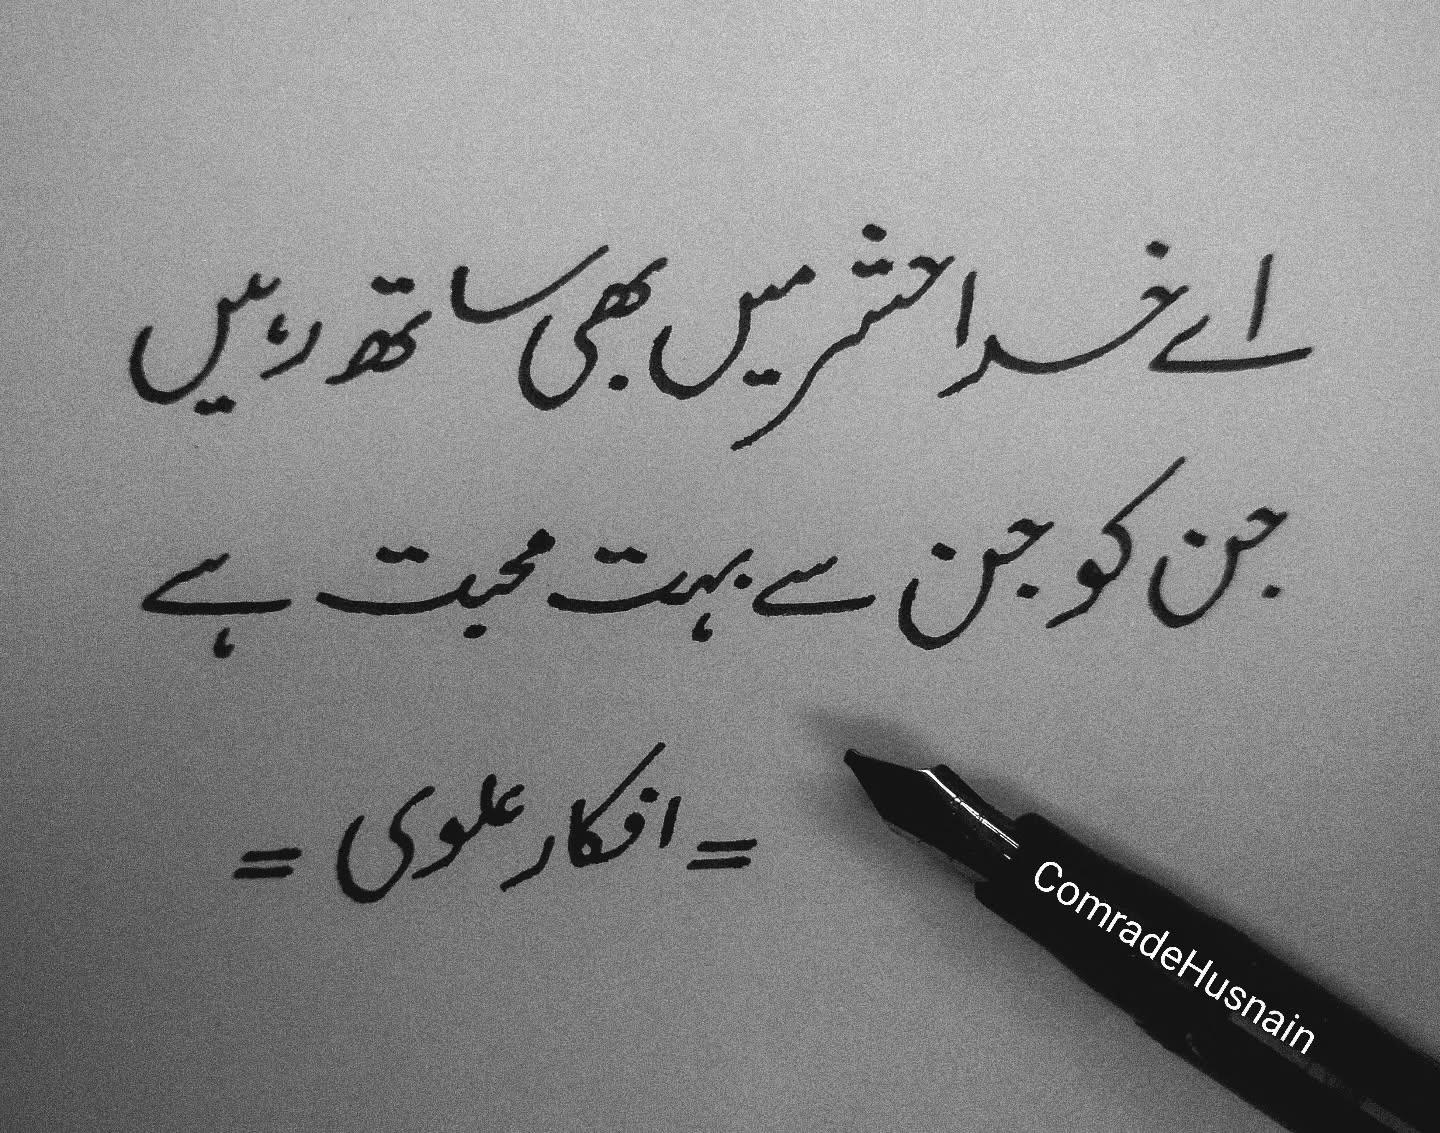 اے خدا حشر میں بھی ساتھ رہیں
جن کو جن سے بہت محبت ہے
= افکار علوی =
ComradeHusnain